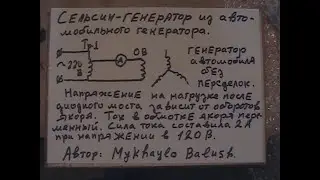 Сельсин-генератор из авто-
мобильного генератора.
Тр1
~ 220
В
А
ОВ
генератор
автомобиля
без
переделок.
Напряжение на нагрузке после
диодного моста зависит от оборотов
якоря. Ток в обмотке якоря пере-
менный. Сила тока составила 2А
при напряжении в 120 В.
Автор: Mykhaylo Balush.